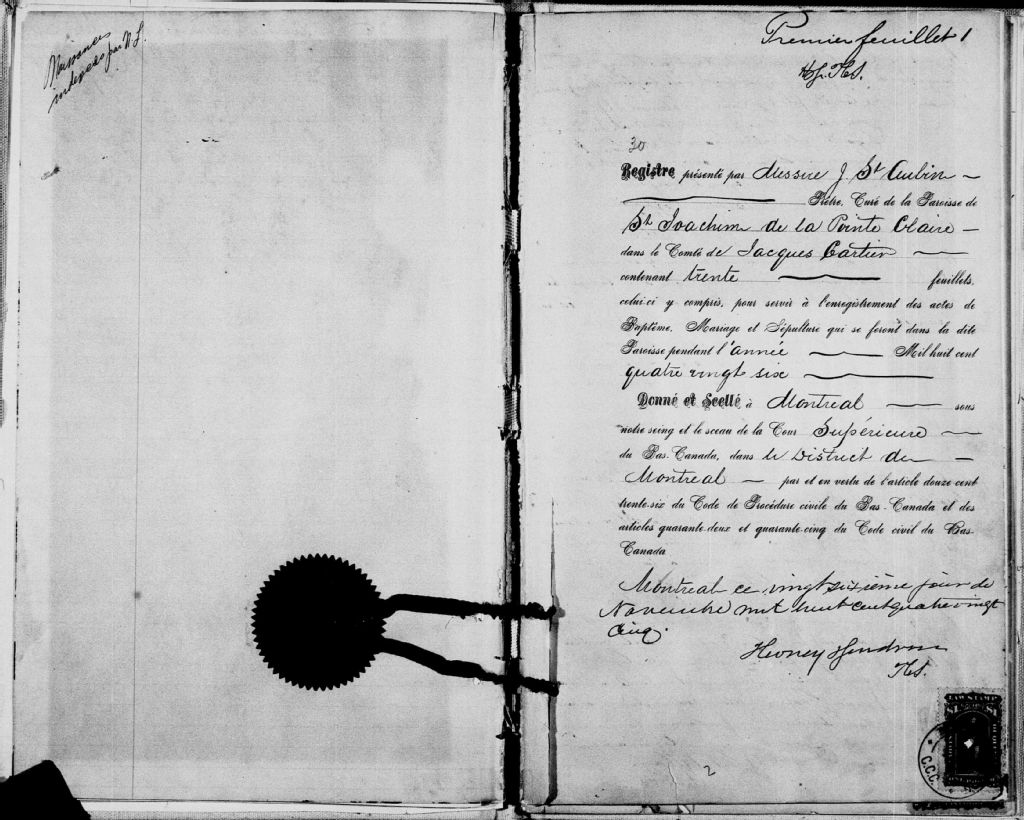 Naissances
indexées par N. L.
Premier feuillet 1
30
Registre présenté par Messire J. St Aubin
Prêtre, Curé de la Paroisse de
St Joachim de la Pointe Claire
dans le Comté de Jacques Cartier
contenant trente feuillets,
celui-ci y compris, pour servir à l'enregistrement des actes de
Baptême, Mariage et Sépulture qui se feront dans la dite
Paroisse pendant l'année Mil huit cent
quatre vingt six
Donné et Scellé à Montreal sous
notre seing et le sceau de la Cour Supérieure
du Bas-Canada, dans le District de
Montreal par et en vertu de l'article douze cent
trente-six du Code de Procédure civile du Bas-Canada et des
articles quarante-deux et quarante-cinq du Code civil du Bas-
Canada
Montreal ce vingt sixième jour de
Novembre mil huit cent quatre vingt
Cinq.
2
LAW STAMP
$1
$1
C.C.C.